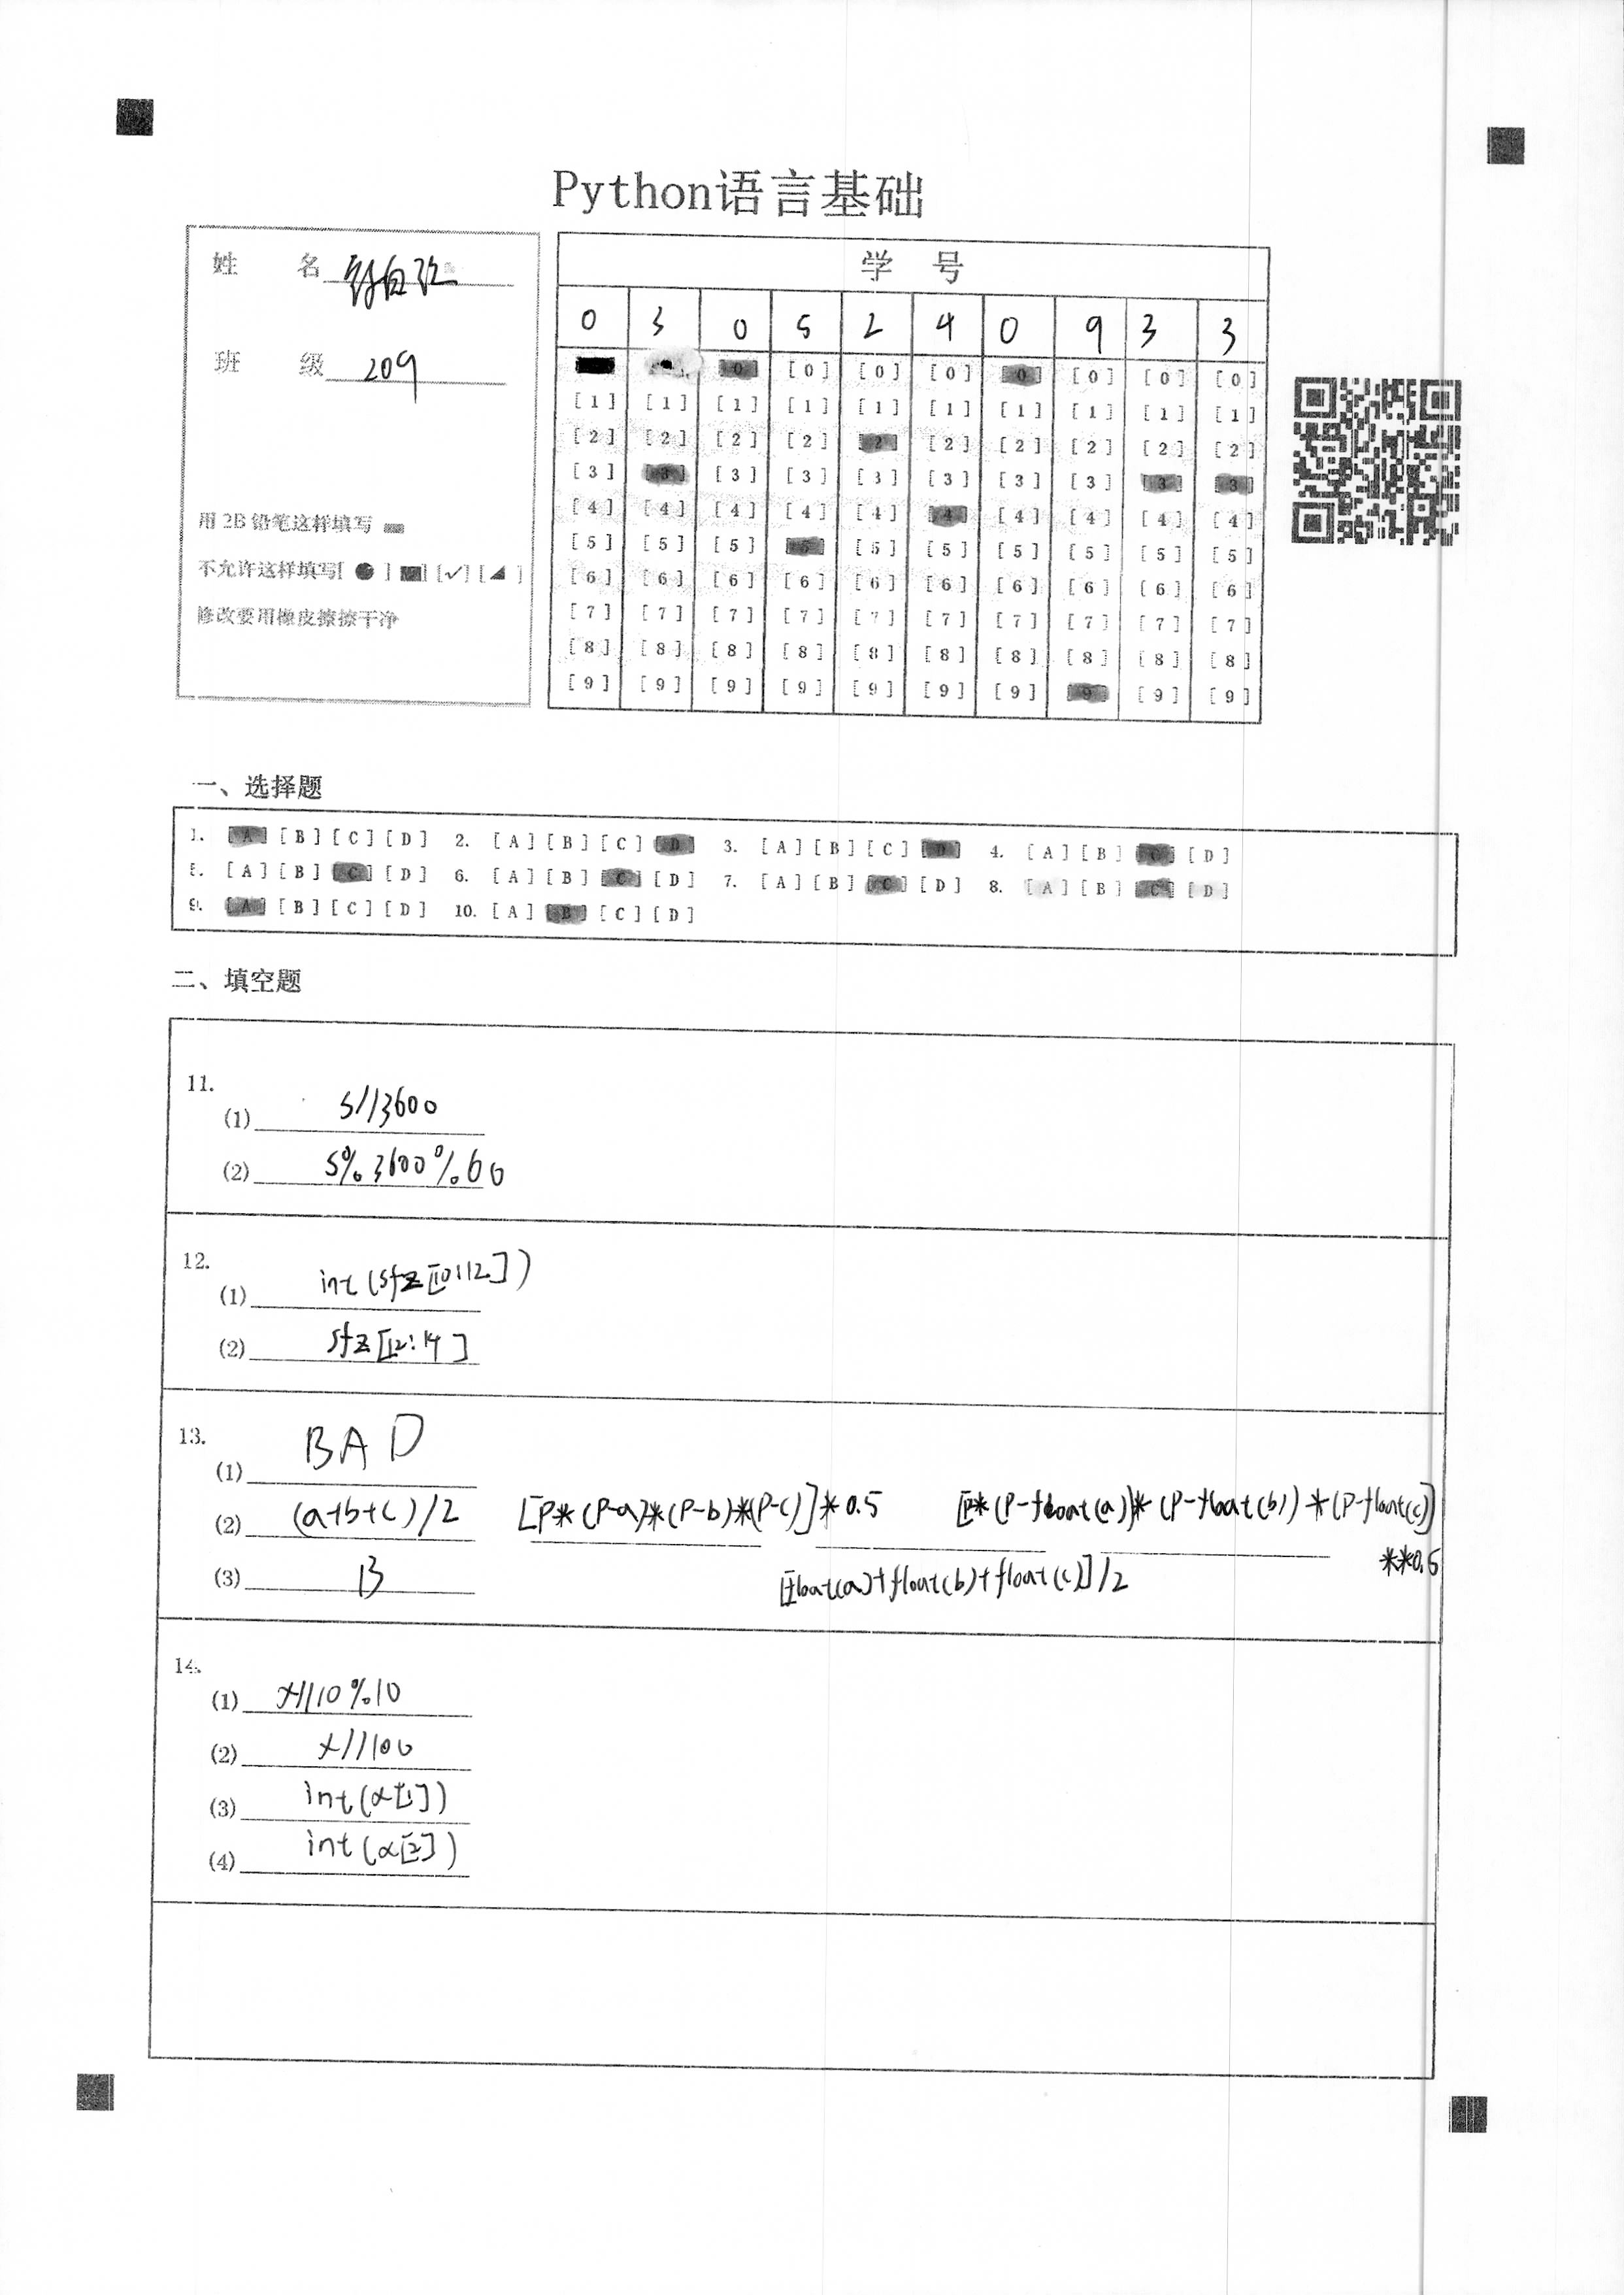 Python语言基础
姓 名
班 级 209
用 2B 铅笔这样填写
不允许这样填写[ ● ] [■] [✓] [◢ ]
修改要用橡皮擦擦干净
学 号
0 3 0 5 2 4 0 9 3 3
[0] [0] [0] [0] [0] [0] [0]
[1] [1] [1] [1] [1] [1] [1] [1] [1] [1]
[2] [2] [2] [2] [2] [2] [2] [2] [2] [2]
[3] [3] [3] [3] [3] [3] [3] [3] [3] [3]
[4] [4] [4] [4] [4] [4] [4] [4] [4] [4]
[5] [5] [5] [5] [5] [5] [5] [5] [5] [5]
[6] [6] [6] [6] [6] [6] [6] [6] [6] [6]
[7] [7] [7] [7] [7] [7] [7] [7] [7] [7]
[8] [8] [8] [8] [8] [8] [8] [8] [8] [8]
[9] [9] [9] [9] [9] [9] [9] [9] [9] [9]
一、选择题
1. [A] [B] [C] [D] 2. [A] [B] [C] [D] 3. [A] [B] [C] [D] 4. [A] [B] [C] [D]
5. [A] [B] [C] [D] 6. [A] [B] [C] [D] 7. [A] [B] [C] [D] 8. [A] [B] [C] [D]
9. [A] [B] [C] [D] 10. [A] [B] [C] [D]
二、填空题
11.
(1) s//3600
(2) s%3600%60
12.
(1) int(sfz[10:12])
(2) sfz[12:14]
13.
(1) BAD
(2) (a+b+c)/2 [P*(P-a)*(P-b)*(P-c)]*0.5 [P*(P-float(a))*(P-float(b))*(P-float(c)]
**0.5
(3) B [float(a)+float(b)+float(c)]/2
14.
(1) x//10%10
(2) x//100
(3) int(x[1])
(4) int(x[2])